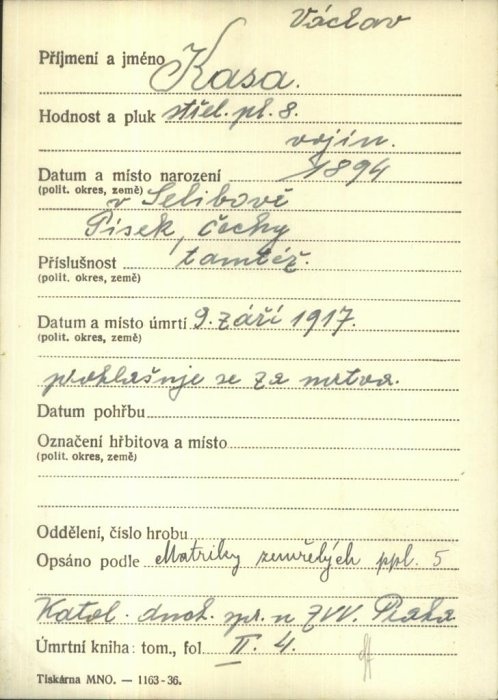 Václav
Příjmení a jméno Kasa.
Hodnost a pluk střel. pl. 8.
vojín.
Datum a místo narození 1894
(polit. okres, země) v Selibově
Písek, Čechy
Příslušnost tamtéž.
(polit. okres, země)
Datum a místo úmrtí 9. září 1917.
(polit. okres, země)
prohlašuje se za mrtva.
Datum pohřbu
Označení hřbitova a místo
(polit. okres, země)
Oddělení, číslo hrobu
Opsáno podle Matriky zemřelých ppl. 5
Katol. duch. spr. u ZVV. Praha
Úmrtní kniha: tom., fol. II. 4.
Tiskárna MNO. — 1163-36.